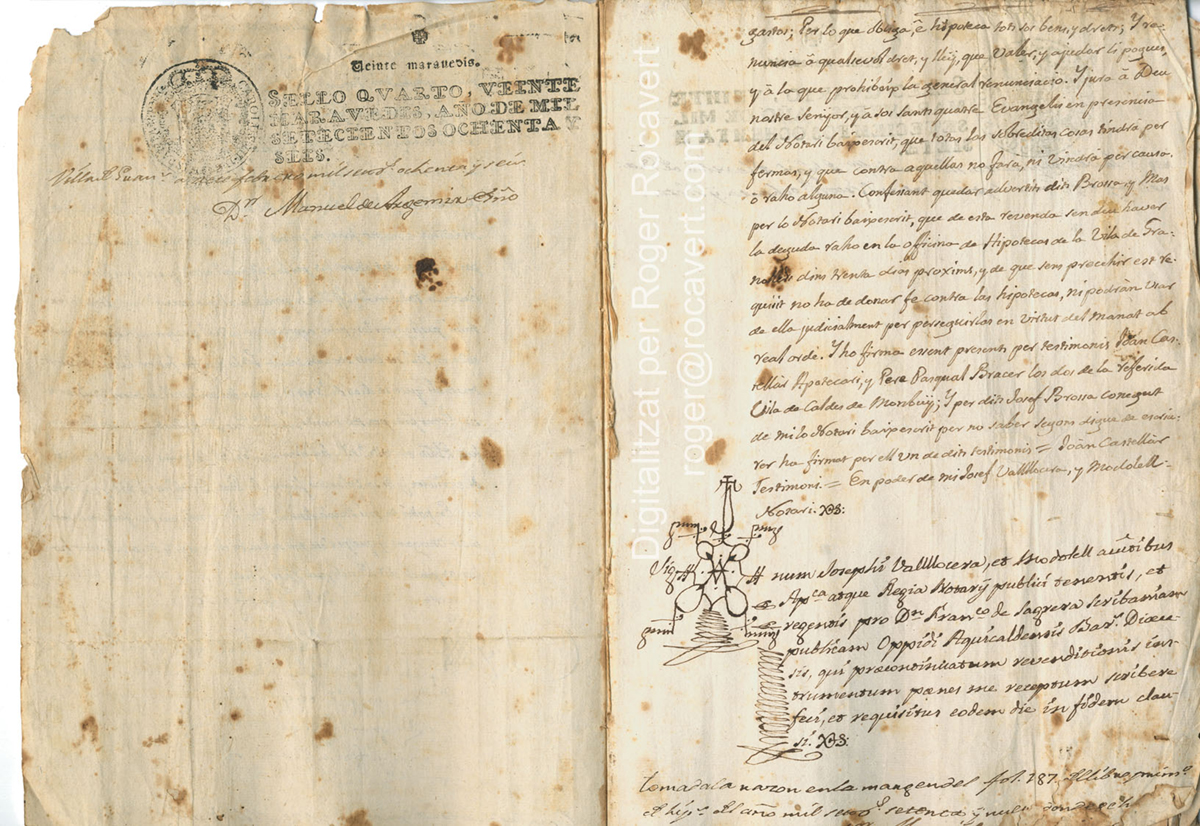 Veinte maravedis.
SELLO QVARTO, VEINTE
MARAVEDIS, AÑO DE MIL
SETECIENTOS OCHENTA Y
SEIS.
febrero mil ochenta y seis
Dn. Manuel de
gastos; Per lo que obliga, è hipoteca tots sos bens, y drets; Y re-
nuncia â qualsevol dret, y lley, que valer, y ajudar li pogues,
y â la que prohibeix la general renunciacio. Y jura â Deu
nostre Senyor, y â sos sants quatre Evangelis en presencia
del Notari baixescrit, que totas las sobreditas cosas tindrà per
fermas, y que contra aquellas no farà, ni vindrà per causa,
ô raho alguna. Confessant quedar advertits dits Brossa y Mas
per lo Notari baixescrit, que de esta revenda sen deu haver
la deguda raho en la officina de Hipotecas de la Vila de Gra-
nollers dins trenta dias proxims, y de que sens precehir est re-
quisit no ha de donar fe contra las hipotecas, ni podràn usar
de ella judicialment per perseguirlas en virtut del manat ab
real orde. Y ho firma essent presents per testimonis Joàn Cas-
tellàr Apotecari, y Pere Pasqual Bracer los dos de la referida
Vila de Caldes de Montbuÿ; Y per dits Josef Brossa conegut
de mi lo Notari baixescrit per no saber segons digue de escriu-
rer ha firmat per ell un de dits testimonis = Joàn Castellàr
Testimoni. = En poder de mi Josef Vallllocera, y Modolell
Notari.
Sig num Josephi Vallllocera, et Modolell auctibus
Apca. atque Regia Notarÿ publici tenentis, et
regentis pro Dn. Franco. de Sagrera scribaniam
publicam Oppidi Aquicaldensis Bars. Dioece-
sis, qui præcontinuatum revenditionis ins-
trumentum pænes me receptum scribere
feci, et requisitus eodem die in fidem clau-
si.
tomada la razon en la margen del fol. 187. del libro
el año mil setenta y nueve donde
Digitalitzat per Roger Rocavert
roger@rocavert.com